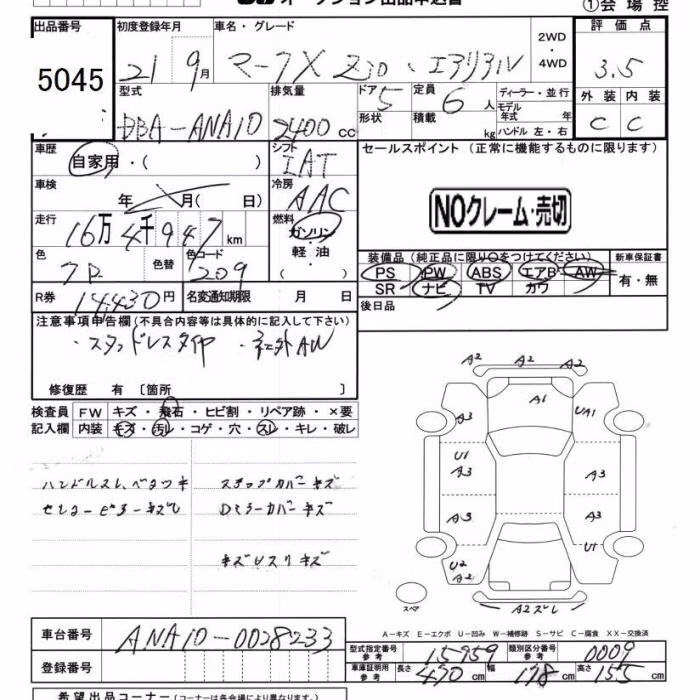 オークション出品申込書
①会場控
出品番号 5045
初度登録年月 21 9月
車名・グレード マークX Zio・エアリアル
2WD・4WD
評価点 3.5
型式 DBA-ANA10
排気量 2400cc
ドア 5 形状
定員 6人 積載 kg
ディーラー・並行
モデル年式 年式
ハンドル 左・右
外装 内装
C C
車歴 自家用・( )
シフト IAT
セールスポイント (正常に機能するものに限ります)
車検 年 月( 日)
冷房 AAC
NOクレーム・売切
走行 16万4千947km
燃料 ガソリン・軽油・( )
色 色替 色コード 209
装備品(純正品に限り○をつけてください)
新車保証書
PS PW ABS エアB AW
SR ナビ TV カワ
有・無
R券 14,430円
名変通知期限 月 日
後日品
注意事項申告欄(不具合内容等は具体的に記入して下さい)
・スタッドレスタイヤ ・ネ土外AW
修復歴 有 〔箇所 〕
検査員記入欄
FW キズ・飛石・ヒビ割・リペア跡・×要
内装 キズ・汚レ・コゲ・穴・スレ・キレ・破レ
ハンドルスレ、ベタツキ
ステップカバーキズ
センターピラーキズレ
Dミラーカバーキズ
キズUスリキズ
A2 A2 A2
A1
A3 UA1
U1 A3 A3
A3 A3
U1
U2 A2
スペア A2ズレ
A-キズ E-エクボ U-凹み W-補修跡 S-サビ C-腐食 XX-交換済
車台番号 ANA10-0028233
型式指定番号 参考 15959
類別区分番号 参考 0009
登録番号
車庫証明用 参考 長さ 470cm 幅 178cm 高さ 155cm
希望出品コーナー (コーナーは各会場により異なります。)